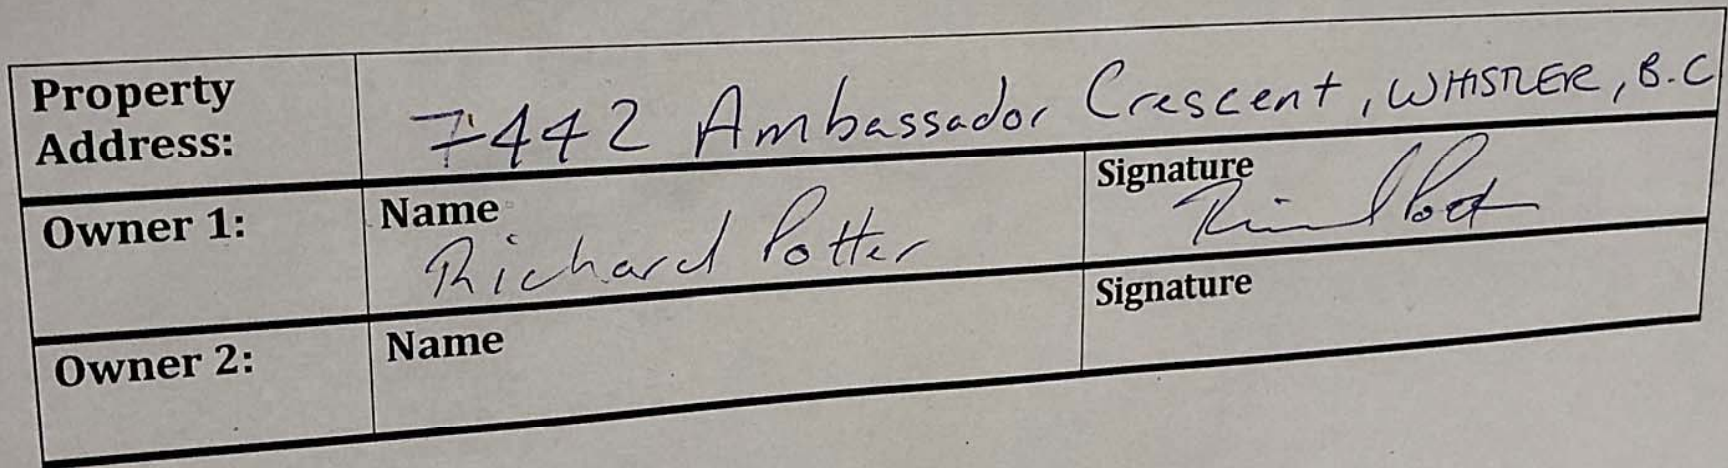 Property Address: 7442 Ambassador Crescent, WHISTLER, B.C
Owner 1: Name Richard Potter Signature
Owner 2: Name Signature